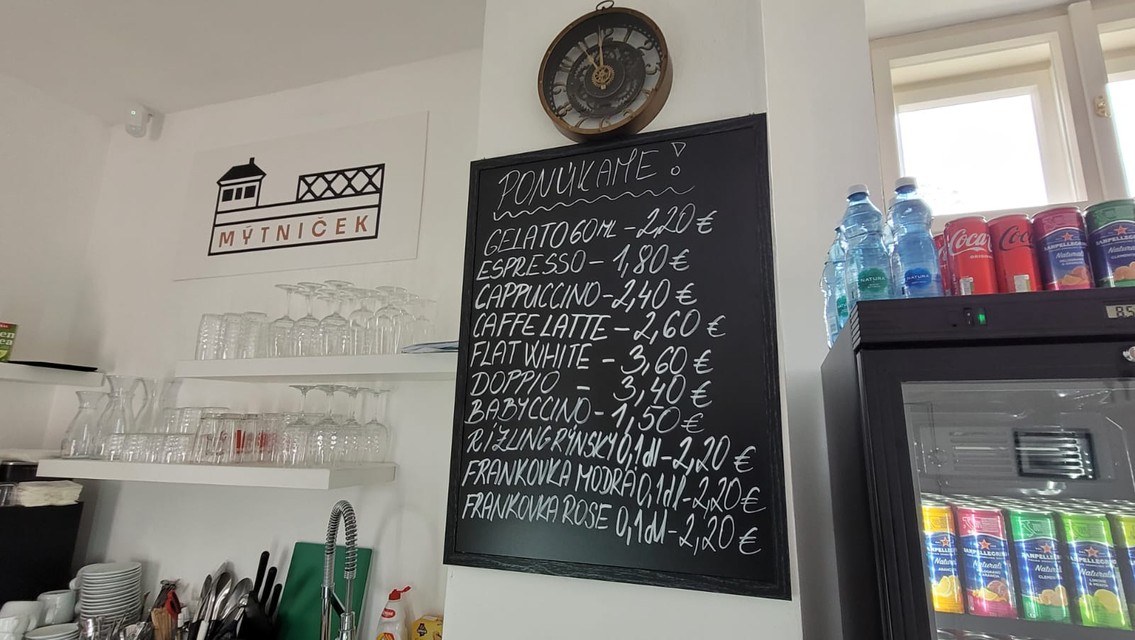 MÝTNIČEK
PONÚKAME!
GELATO 60ML - 2,20 €
ESPRESSO - 1,80 €
CAPPUCCINO - 2,40 €
CAFFE LATTE - 2,60 €
FLAT WHITE - 3,60 €
DOPPIO - 3,40 €
BABYCCINO - 1,50 €
RIZLING RÝNSKY 0,1dl - 2,20 €
FRANKOVKA MODRÁ 0,1dl - 2,20 €
FRANKOVKA ROSE 0,1dl - 2,20 €
NATURA
NATURA
Coca-Cola
SANPELLEGRINO
Naturali
SANPELLEGRINO
Naturali
SANPELLEGRINO
Naturali
SANPELLEGRINO
Naturali
SANPELLEGRINO
Naturali
SANPELLEGRINO
Naturali